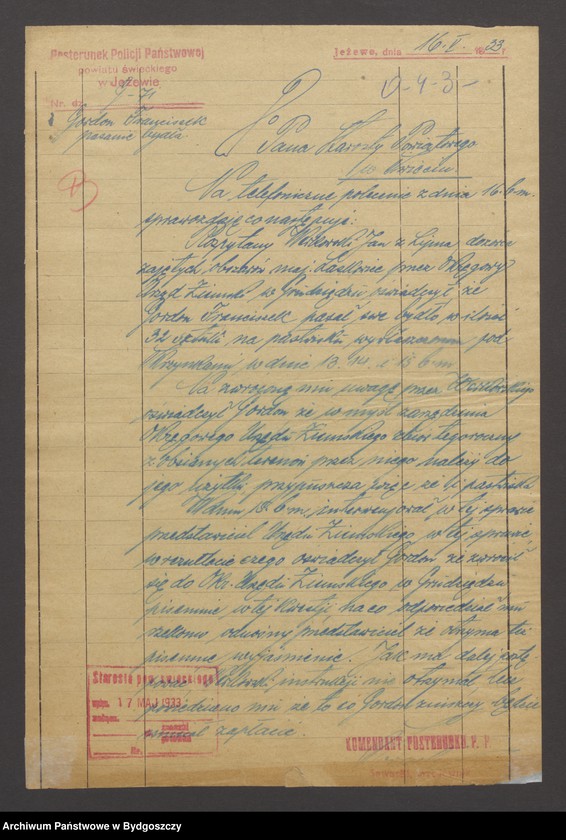 Posterunek Policji Państwowej
powiatu świeckiego
w Jeżewie
Nr. dz.
Jeżewo, dnia 16.V. 1933 r.
Gordon Franciszek
pasanie bydła
Do
Pana Starosty Powiatowego
w Świeciu.
Na telefoniczne polecenie z dnia 16. b.m.
sprawozdaję co następuje:
Rozpytany Jan z Lipna dozorca
zajętych obszarów maj. Laskowice przez Okręgowy
Urząd Ziemski w Grudziądzu oświadczył, że
Gordon Franciszek pasał swe bydło w ilości
32 sztuk na pastwisku pod
w dnie 13. 14. i 15 b.m.
Na zwróconą mu uwagę przez
oświadczył Gordon że w myśl zarządzenia
Okręgowego Urzędu Ziemskiego zbiór tegoroczny
z terenów przez niego należy do
jego użytku, przypuszcza że i pastwiska
W dniu 16 b.m. interwenjował w tej sprawie
przedstawiciel Urzędu Ziemskiego, w tej sprawie,
w rezultacie czego oświadczył Gordon, że zwrócił
się do Okr. Urzędu Ziemskiego w Grudziądzu
pisemnie w tej kwestji na co odpowiedział mu
rzekomo przedstawiciel że otrzyma tu
pisemne wyjaśnienie. Jak ma dalej
instrukcji nie otrzymał lecz
powiedziano mu że to co Gordon będzie
musiał zapłacić.
Starostwo pow. świeckiego
wpłyn. 17 MAJ 1933
Nr.
KOMENDANT POSTERUNKU P. P.
Archiwum Państwowe w Bydgoszczy